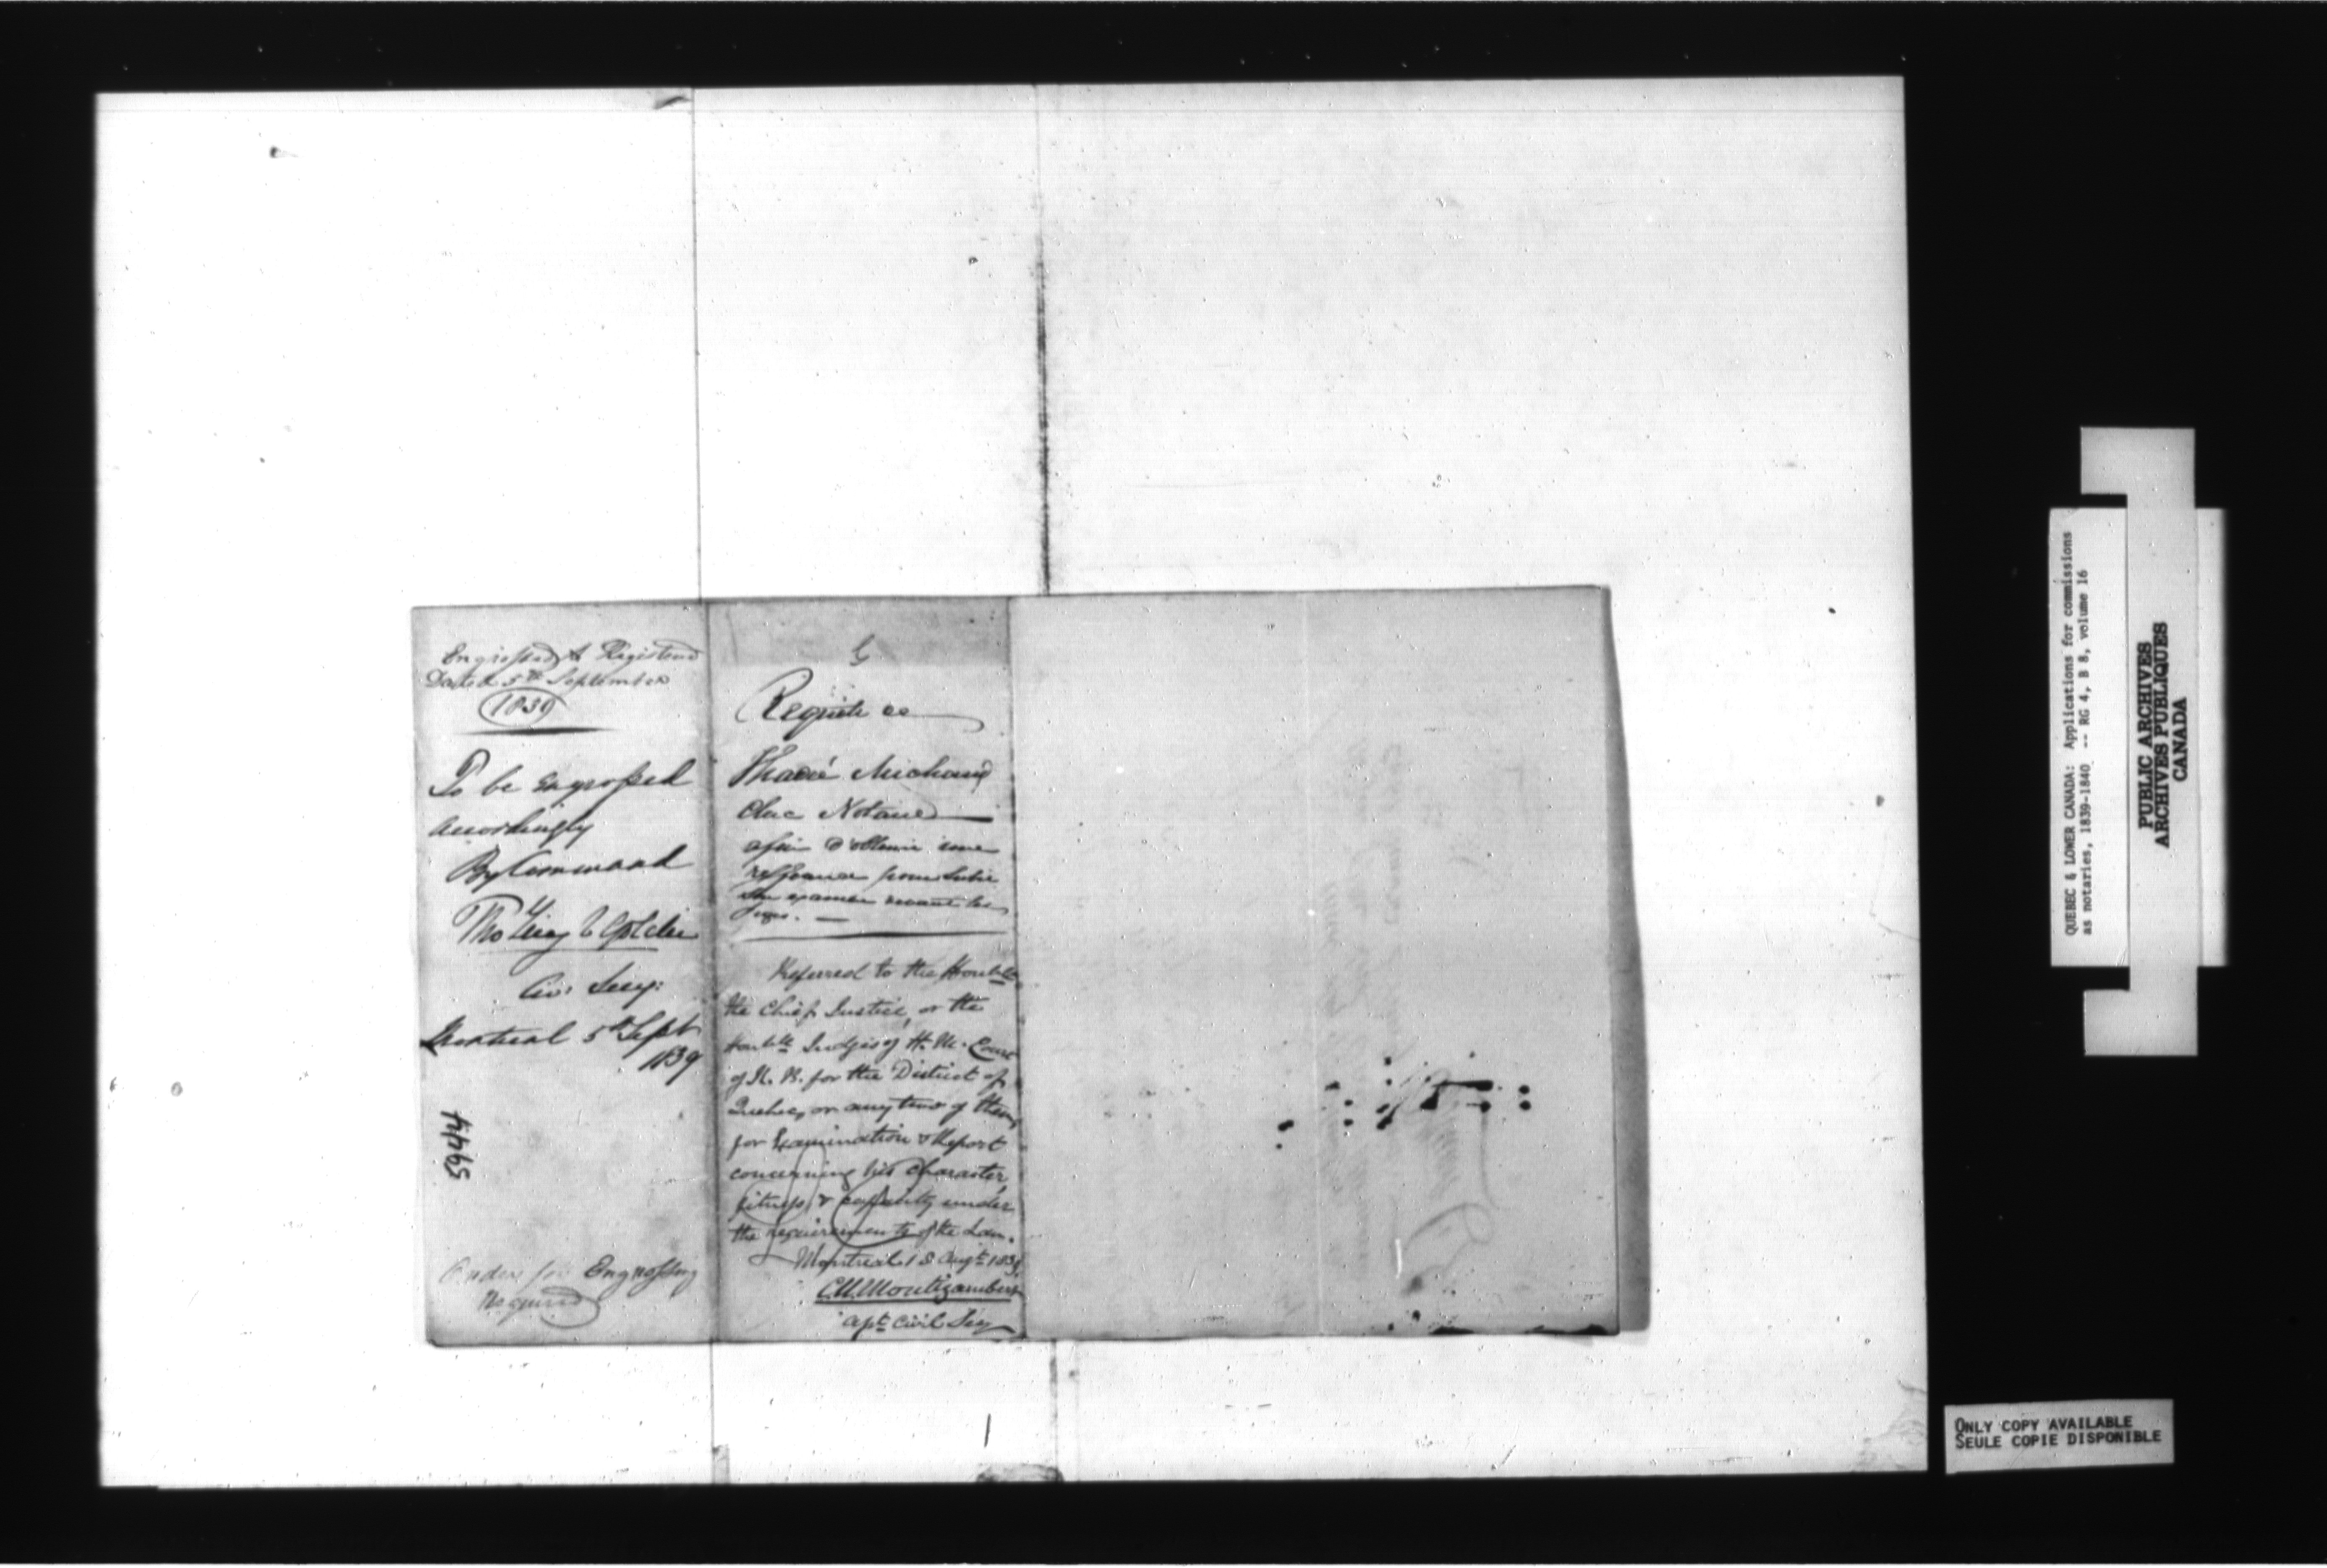 Engrossed & Registered
Dated 5th September
1839
To be Engrossed
accordingly
By Command
Civ: Secy:
Montreal 5th Sept
1839
5944
Order for Engrossing
Required
Requête de
Michaud
Clerc Notaire
afin d'obtenir une
référence pour subir
son examen devant les
Juges. —
Referred to the Honble
the Chief Justice, or the
Honble Judges of H. M. Court
of K. B. for the District of
Quebec, or any two of them,
for Examination & Report
concerning his character,
fitness, & capacity under
the requirements of the Law.
Montreal 18 Augt 1839.
C.M. Montizambert
Asst Civil Secy
QUEBEC & LOWER CANADA: Applications for commissions
as notaries, 1839-1840 -- RG 4, B 8, volume 16
PUBLIC ARCHIVES
ARCHIVES PUBLIQUES
CANADA
ONLY COPY AVAILABLE
SEULE COPIE DISPONIBLE